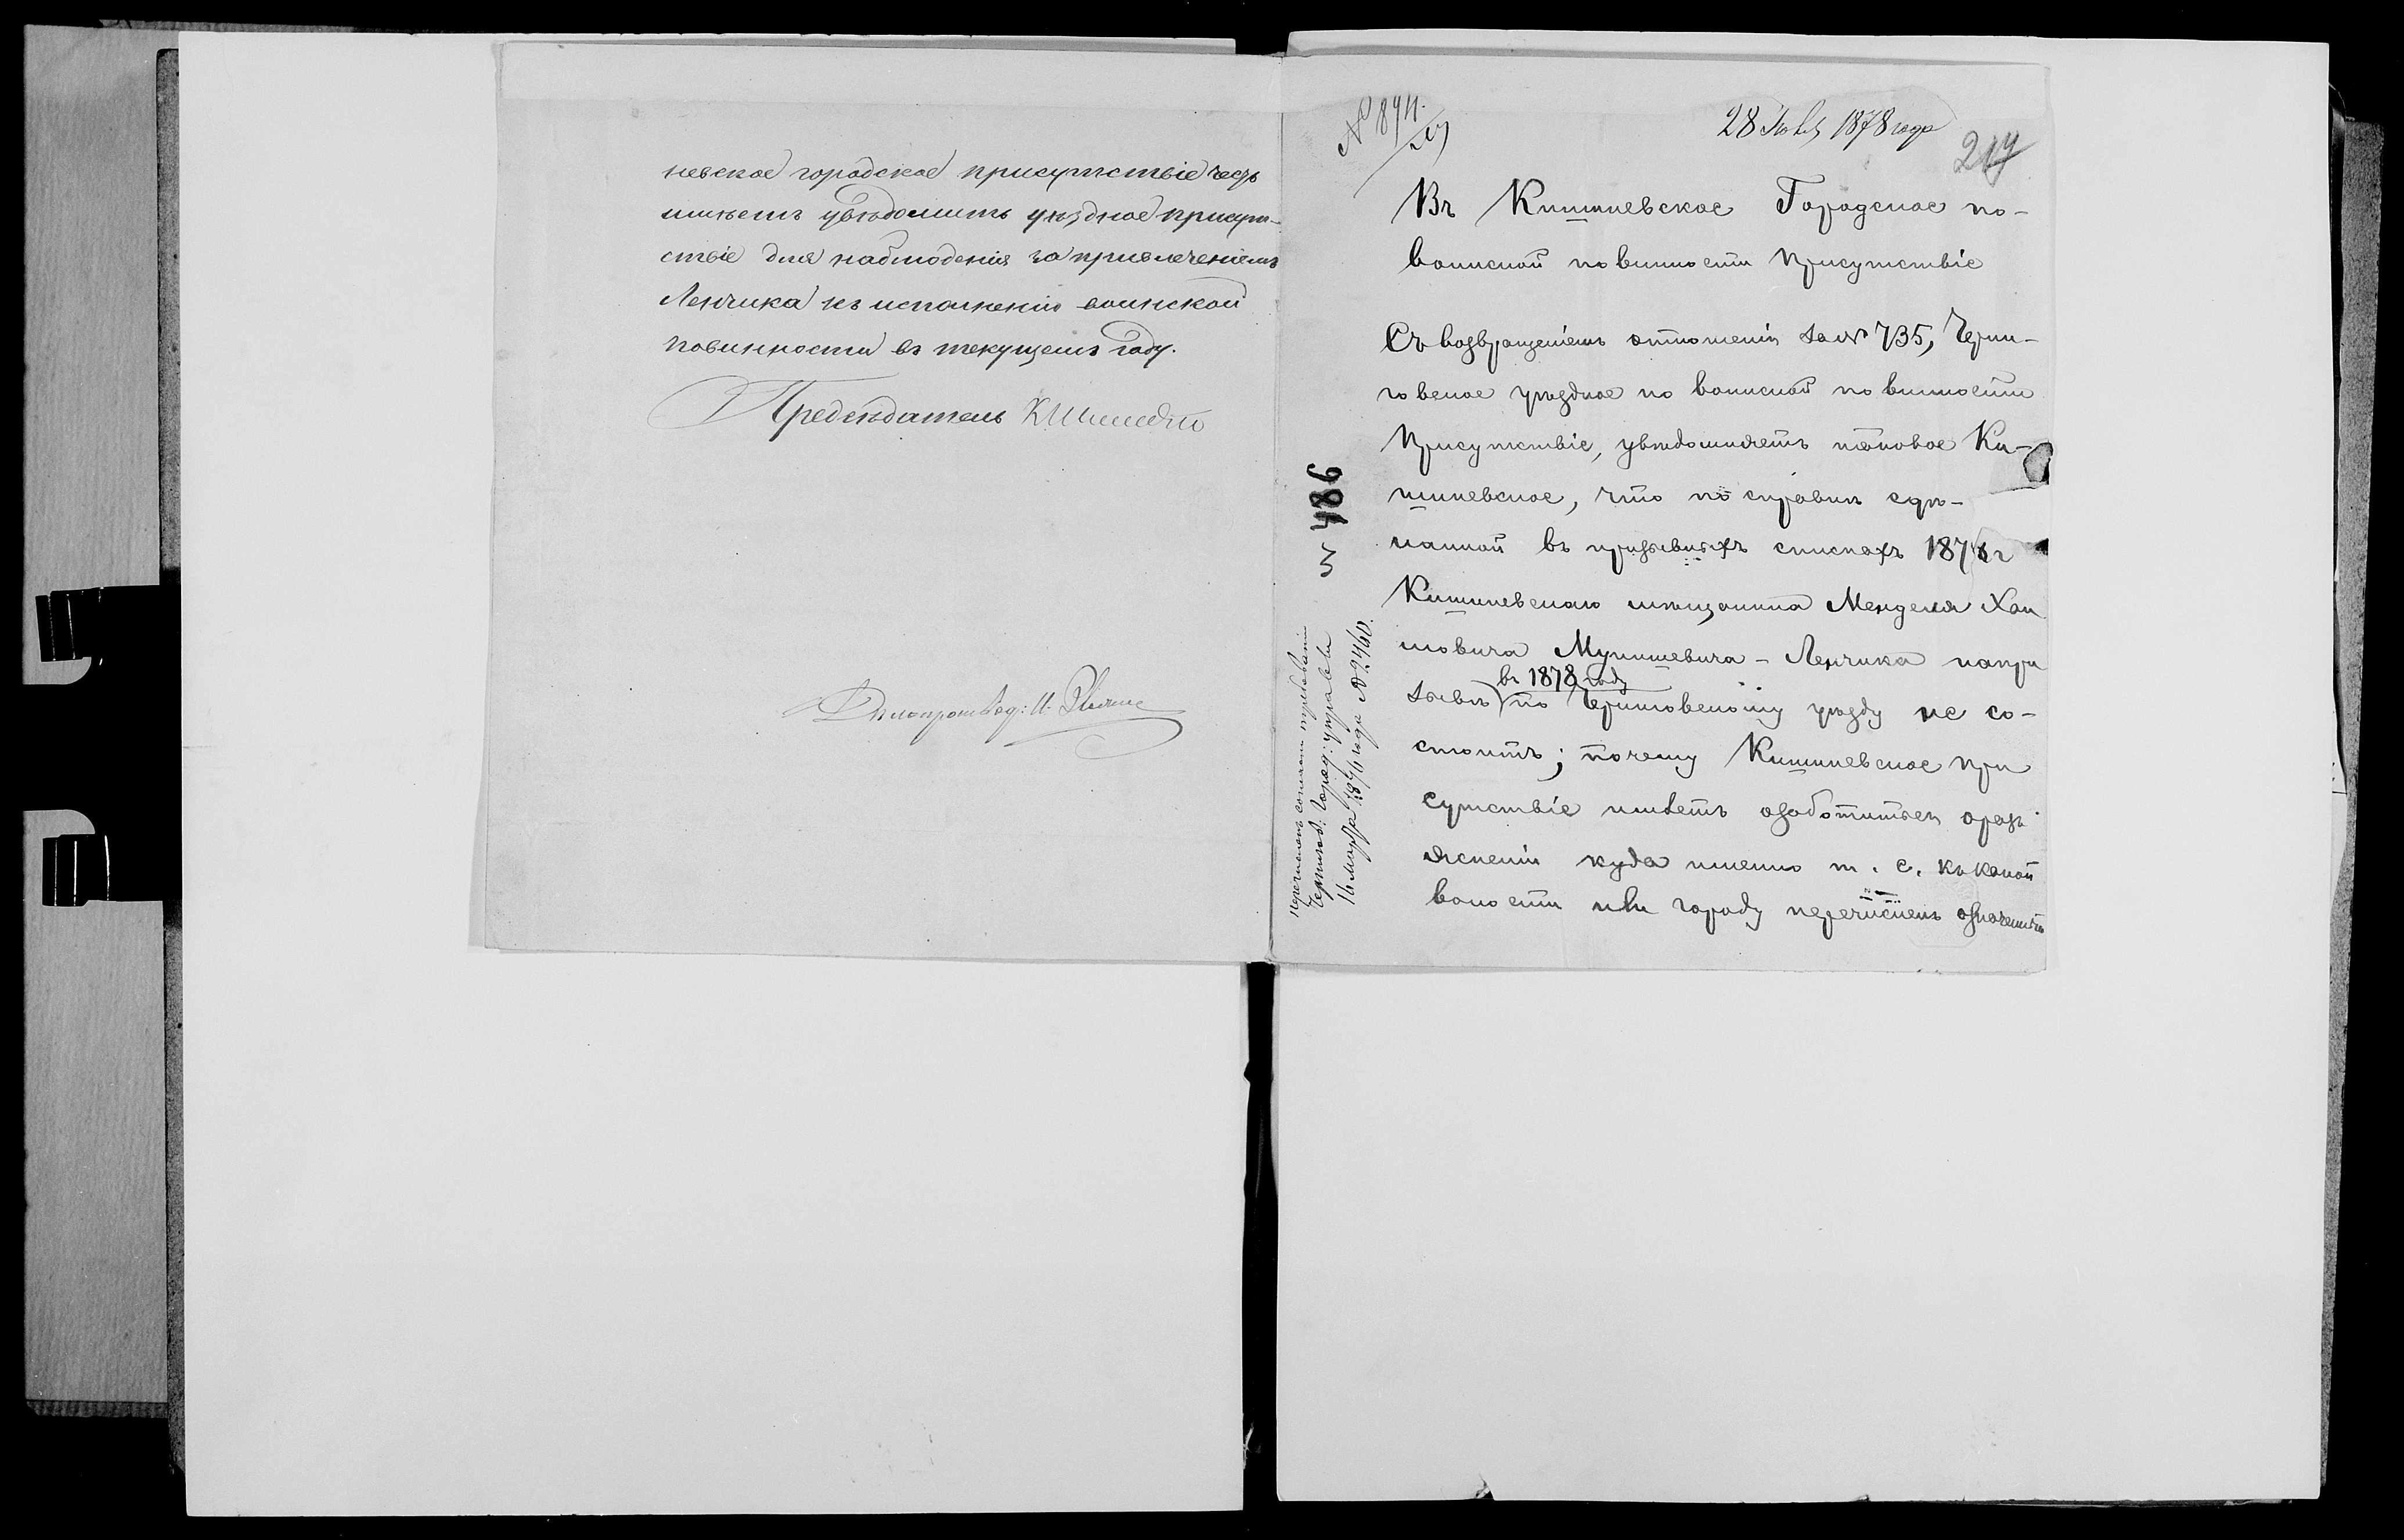 невское городское присутствіе честь
имѣетъ увѣдомить уѣздное присут-
ствіе для наблюденія за привлеченіемъ
Ленчика къ исполненію воинской
повинности въ текущемъ году.
Предсѣдатель
Дѣлопроизвод: И.
№ 894.
28 1878 года
217
Въ Кишиневское Городское по-
воинской повинности Присутствіе
Съ возвращеніемъ отношенія за № 735, Черни-
говское уѣздное по воинской повинности
Присутствіе, увѣдомляетъ таковое Ки-
шиневское, что по справкѣ сдѣ-
ланной въ призывныхъ спискахъ 1878 г
Кишиневскаго мѣщанина Менделя Хаи
мовича Мунишевича - Ленчика напри
въ 1878 году
зывѣ) по Черниговскому уѣзду не со-
стоитъ; почему Кишиневское При
сутствіе имѣетъ озаботиться о разъ
ясненіи куда именно т. е. къ какой
волости или городу перечисленъ означенный
5 486
перечисленъ согласно требованія
Чернигов: Город: управы
16 марта 1876 года № 2460.